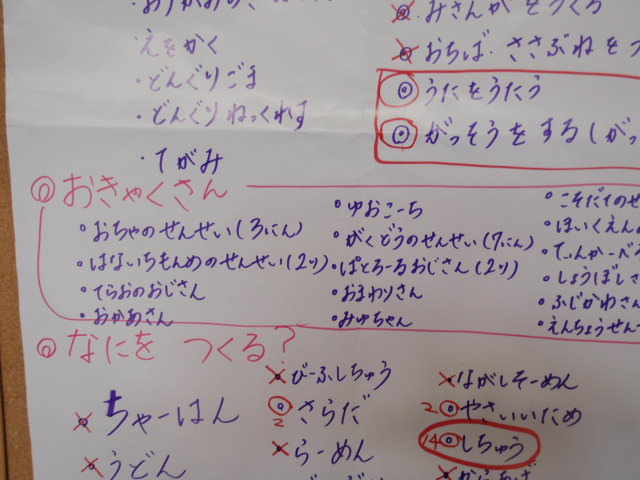 みさんがをつくる
えをかく
おちば・ささぶねを
どんぐりごま
うたをうたう
どんぐりねっくれす
がっそうをする(がっ
てがみ
おきゃくさん
おちゃのせんせい(3にん)
ゆおこーち
こそだてのせ
はないちもんめのせんせい(2り)
がくどうのせんせい(7にん)
ほいくえんの
てらおのおじさん
ぱとろーるおじさん(2り)
おかあさん
おまわりさん
しょうぼしさ
みゆちゃん
ふじかわさん
えんちょうせん
なにを つくる?
びーふしちゅう
ながしそーめん
ちゃーはん
2 さらだ
2 やさいいため
うどん
らーめん
14 しちゅう
からあげ